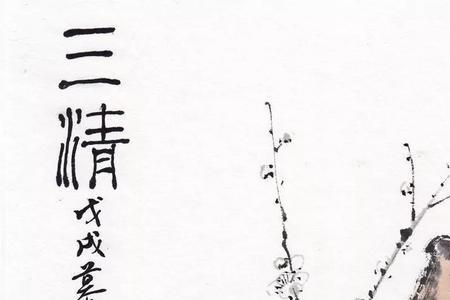 三清
戊戌暮